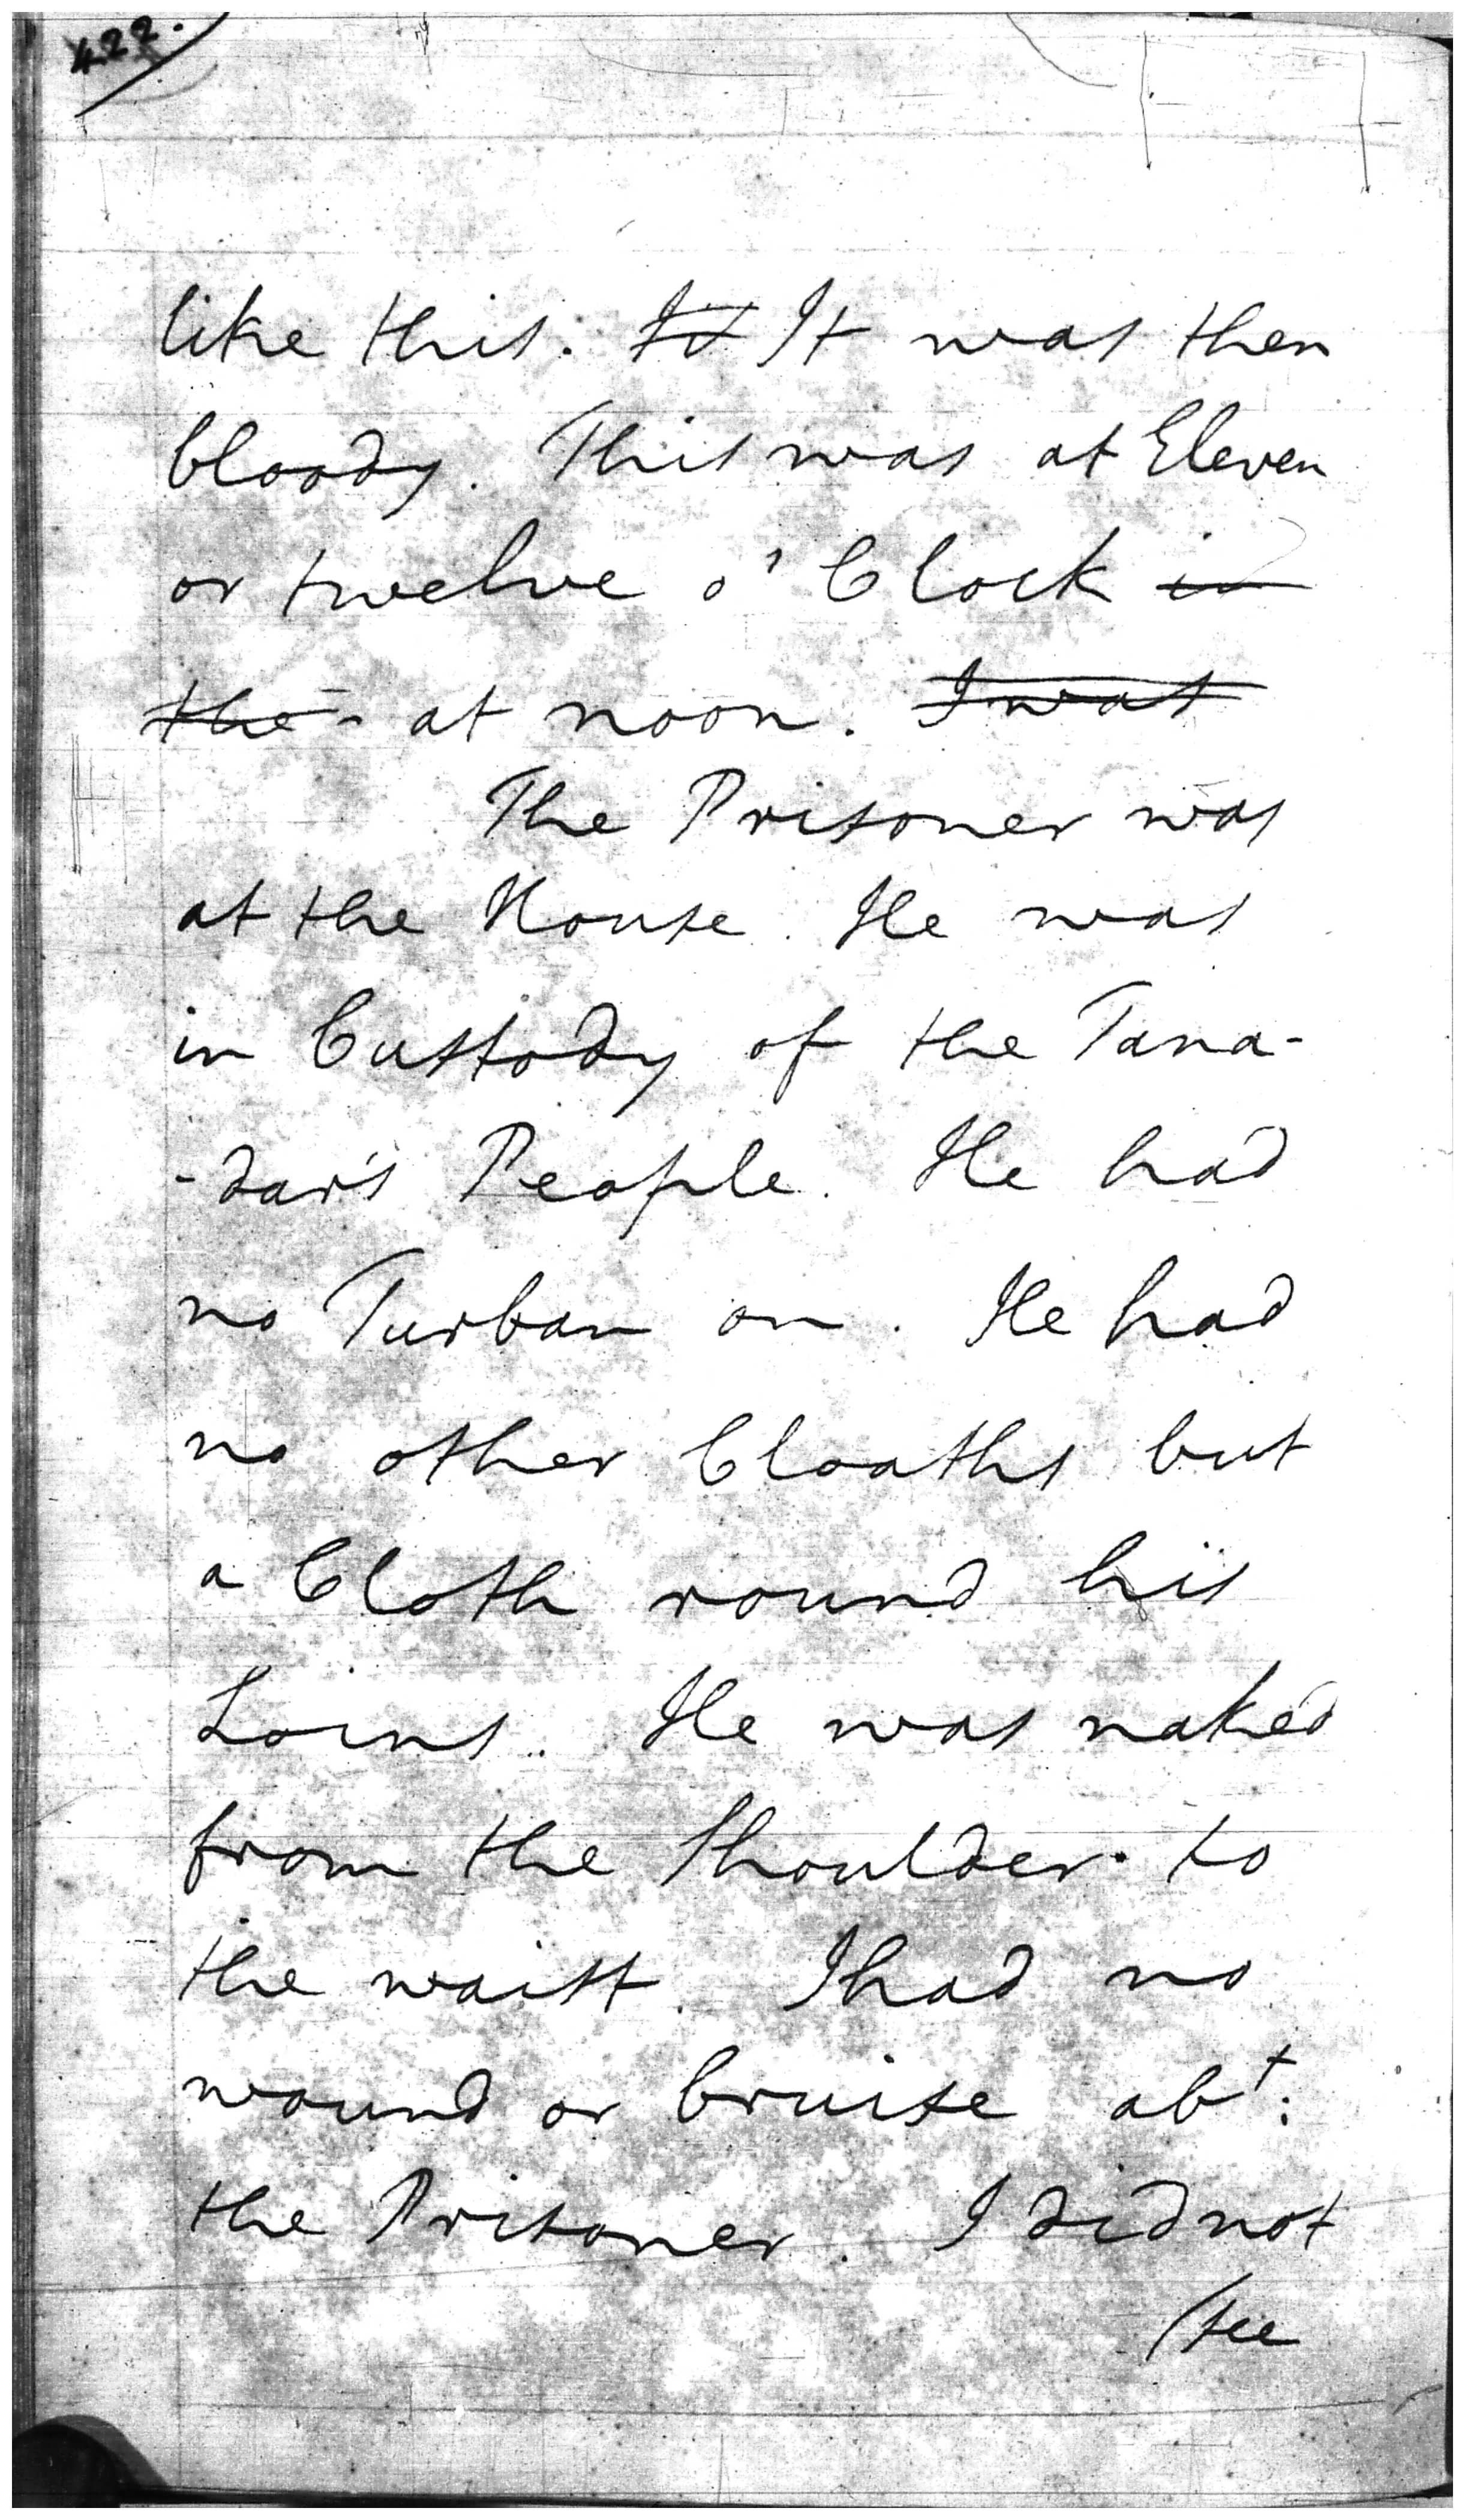 422.
like this. It It was then
bloody. This was at Eleven
or twelve o' Clock in
the - at noon. I was
The Prisoner was
at the House. He was
in Custody of the Tana-
-dar's People. He had
no Turban on. He had
no other Cloaths but
a Cloth round his
Loins. He was naked
from the Shoulder to
the waist. I had no
wound or bruise abt:
the Prisoner. I did not
(see